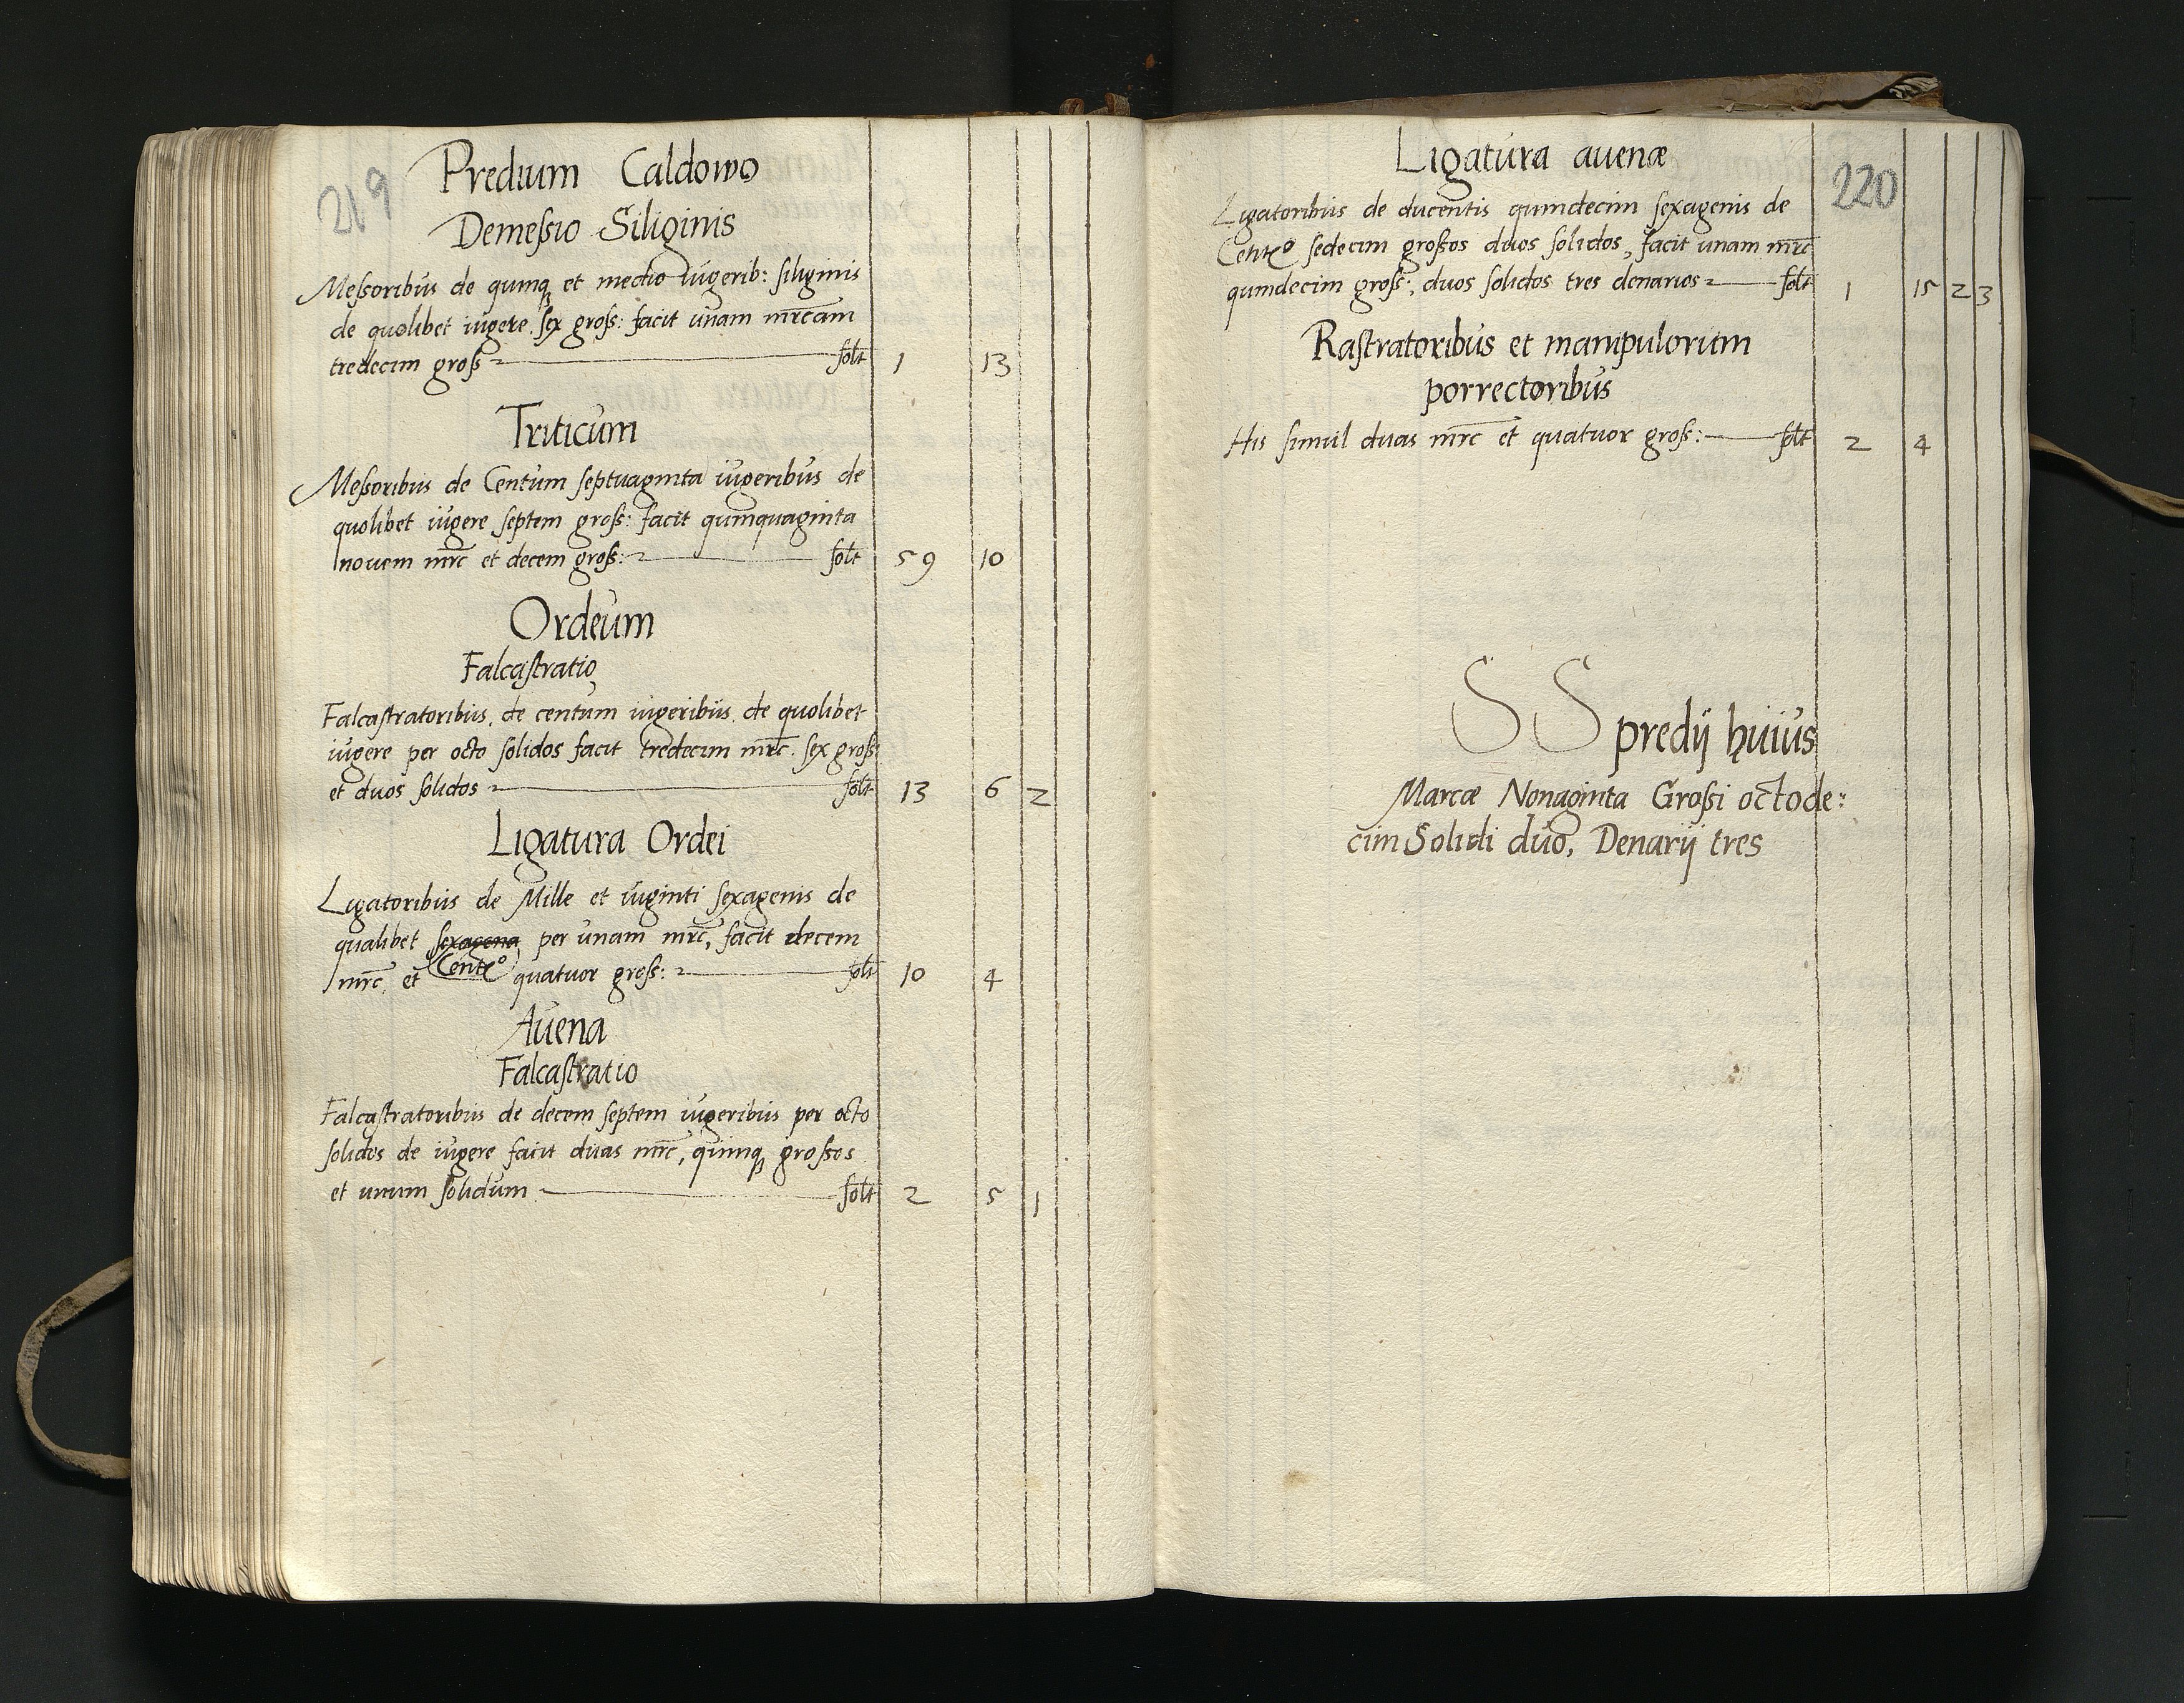 219
Predium Caldowo
Demeſsio Siliginis
Meſsoribus de quinqȝ et medio iugerib: siliginis
de quolibet iugere sex groſs: facit unam mrcam
tredecim groſs solt 1 13
Triticum
Meſsoribus de Centum septuaginta iugeribus de
quolibet iugere septem groſs: facit quinquaginta
novem mrc et decem groſs: solt 59 10
Ordeum
Falcastratio
Falcastratoribus de centum iugeribus de quolibet
iugere per octo solidos facit tredecim mrc. sex groſs
et duos solidos solt 13 6 2
Ligatura Ordei
Ligatoribus de Mille et viginti sexagenis de
qualibet sexagena per unam mrc, facit decem
mrc. et Centº quatuor groſs: solt 10 4
Auena
Falcastratio
Falcastratoribus de decem septem iugeribus per octo
solidos de iugere facit duas mrc, quinqȝ groſsos
et unum solidum solt 2 5 1
220
Ligatura auenæ
Ligatoribus de ducentis quindecim sexagenis de
Centº sedecim groſsos duos solidos, facit unam mrc
quindecim groſs:, duos solidos tres denarios solt 1 15 2 3
Rastratoribus et manipulorum
porrectoribus
His simul duas mrc et quatuor groſs: solt 2 4
SS predij huius
Marcæ Nonaginta Groſsi octode:
cim Solidi duo, Denarij tres